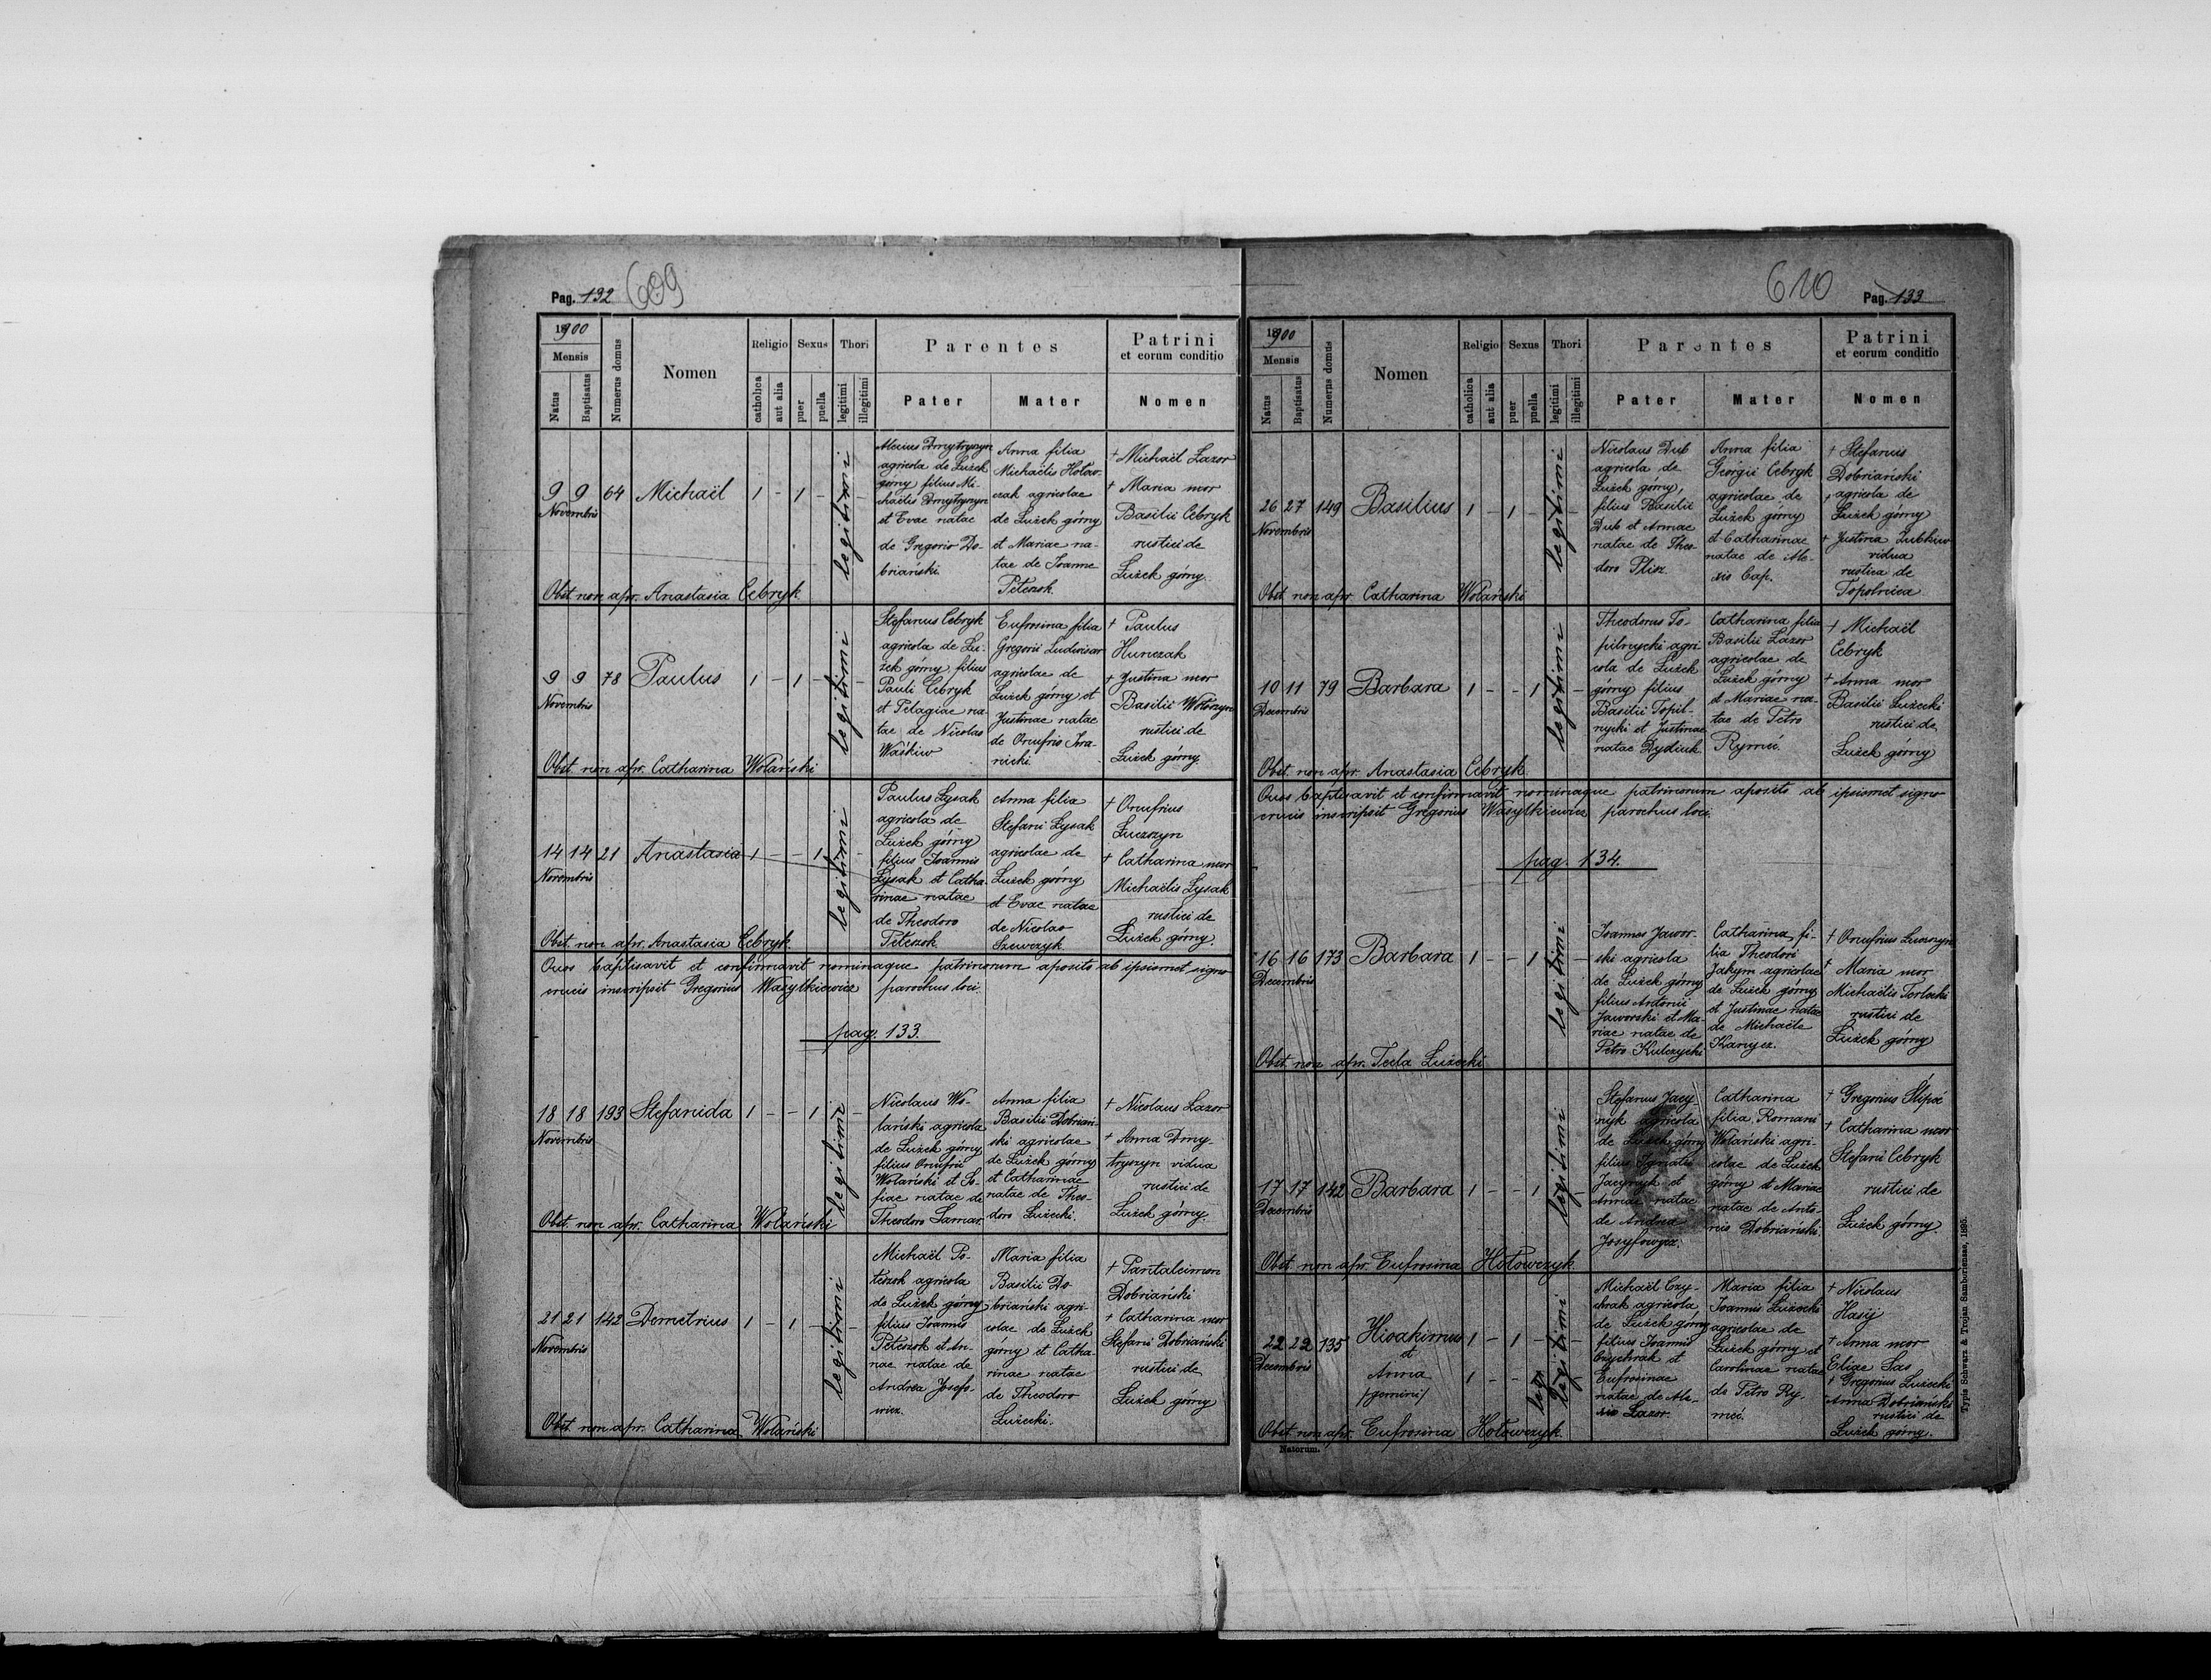 Pag. 132 609
1900
Mensis
Natus
Baptisatus
Numerus domus
Nomen
Religio
catholica
aut alia
Sexus
puer
puella
Thori
legitimi
illegitimi
Parentes
Pater
Mater
Patrini
et eorum conditio
Nomen
9 9 64 Michaël 1 - 1 - legitimi -
Novembris
Alexius Dmytryszyn
agricola de Łużek
górny filius Mi-
chaëlis Dmytryszyn
et Evae natae
de Gregorio Do-
briański
Anna filia
Michaëlis Hołow-
czak agricolae
de Łużek górny
et Mariae na-
tae de Joanne
Peteszok.
† Michaël Lazor
† Maria uxor
Basilii Cebryk
rustici de
Łużek górny.
Obst. non apr. Anastasia Cebryk.
9 9 78 Paulus 1 - 1 - legitimi -
Novembris
Stefanus Cebryk
agricola de Łu-
żek górny filius
Pauli Cebryk
et Pelagiae na-
tae de Nicolao
Waśkiw
Eufrosina filia
Gregorii Ludwisar
agricolae de
Łużek górny et
Justinae natae
de Onufrio Iwa-
nicki.
† Paulus
Hunczak
† Justina uxor
Basilii Wołoszyn
rustici de
Łużek górny.
Obst. non apr. Catharina Wolański
14 14 21 Anastasia 1 - - 1 legitimi -
Novembris
Paulus Łysak
agricola de
Łużek górny
filius Joannis
Łysak et Catha-
rinae natae
de Theodoro
Peteszok
Anna filia
Stefani Łysak
agricolae de
Łużek górny
et Evae natae
de Nicolao
Szewczyk
† Onufrius
Łuczszyn
† Catharina uxor
Michaëlis Łysak
rustici de
Łużek górny.
Obst. non apr. Anastasia Cebryk.
Quos baptisavit et confirmavit nominaque patrinorum aposito ab ipsismet signo
crucis inscripsit Gregorius Wasylkiewicz parochus loci.
pag. 133.
18 18 193 Stefanida 1 - - 1 legitimi -
Novembris
Nicolaus Wo-
lański agricola
de Łużek górny
filius Onufrii
Wolański et So-
fiae natae de
Theodoro Lamar.
Anna filia
Basilii Dobriań-
ski agricolae
de Łużek górny
et Catharinae
natae de Theo-
doro Łużecki.
† Nicolaus Lazor
† Anna Dmy-
tryszyn vidua
rustici de
Łużek górny.
Obst. non apr. Catharina Wolański
21 21 142 Demetrius 1 - 1 - legitimi -
Novembris
Michaël Pe-
teszok agricola
de Łużek górny
filius Joannis
Peteszok et An-
nae natae de
Andrea Josefo-
wicz.
Maria filia
Basilii Do-
briański agri-
colae de Łużek
górny et Catha-
rinae natae
de Theodoro
Łużecki.
† Pantaleimon
Dobriański
† Catharina uxor
Stefani Dobriański
rustici de
Łużek górny
Obst. non apr. Catharina Wolański
610 Pag. 133
1900
Mensis
Natus
Baptisatus
Numerus domus
Nomen
Religio
catholica
aut alia
Sexus
puer
puella
Thori
legitimi
illegitimi
Parentes
Pater
Mater
Patrini
et eorum conditio
Nomen
26 27 149 Basilius 1 - 1 - legitimi -
Novembris
Nicolaus Dub
agricola de
Łużek górny,
filius Basilii
Dub et Annae
natae de Theo-
doro Plisz
Anna filia
Georgii Cebryk
agricolae de
Łużek górny
et Catharinae
natae de Ale-
xio Cap.
† Stefanus
Dobriański
agricola de
Łużek górny
† Justina Lubkiw
vidua
rustica de
Topolnica
Obst. non apr. Catharina Wolański
10 11 79 Barbara 1 - - 1 legitimi -
Decembris
Theodorus To-
pilnycki agri-
cola de Łużek
górny filius
Basilii Topil-
nycki et Justinae
natae Dydiuk
Catharina filia
Basilii Lazor
agricolae de
Łużek górny
et Mariae na-
tae de Petro
Rymić.
† Michaël
Cebryk
† Anna uxor
Basilii Łużecki
rustici de
Łużek górny
Obst. non apr. Anastasia Cebryk.
Quos baptisavit et confirmavit nominaque patrinorum aposito ab ipsismet signo
crucis inscripsit Gregorius Wasylkiewicz parochus loci.
pag. 134.
16 16 173 Barbara 1 - - 1 legitimi -
Decembris
Joannes Jawor-
ski agricola
de Łużek górny
filius Antonii
Jaworski et Ma-
riae natae de
Petro Kulczycki
Catharina fi-
lia Theodori
Jakym agricolae
de Łużek górny
et Justinae natae
de Michaële
Kanycz.
† Onufrius
† Maria uxor
Michaëlis Torlecki
rustici de
Łużek górny
Obst. non apr. Tecla Łużecki
17 17 142 Barbara 1 - - 1 legitimi -
Decembris
Stefanus Jacy-
nyk agricola
de Łużek górny
filius Ignatii
Jacynyk et
Annae natae
de Andrea
Josyfowycz.
Catharina
filia Romani
Wolański agri-
colae de Łużek
górny et Mariae
natae de Anto-
nio Dobriański.
† Gregorius
† Catharina uxor
Stefani Cebryk
rustici de
Łużek górny.
Obst. non apr. Eufrosina Hołowczyk.
22 22 135 Hioakimus 1 - 1 - legitimi -
Decembris
et
Anna 1 - - legi
/gemini/
Michaël Czy-
chrak agricola
de Łużek górny
filius Joannis
Czychrak et
Eufrosinae
natae de Ale-
xio Lazor.
Maria filia
Joannis Łużecki
agricolae de
Łużek górny et
Carolinae natae
de Petro Ry-
mić.
† Nicolaus
Hasij
† Anna uxor
Eliae Sas
† Gregorius Łużecki
† Anna Dobriański
rustici de
Łużek górny.
Obst. non apr. Eufrosina Hołowczyk.
Natorum.
Typis Schwarz & Trojan Samboriensas, 1895.